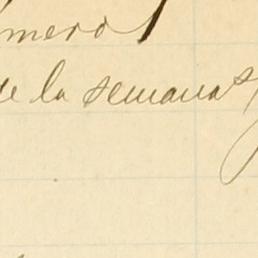 mero
de la semanas